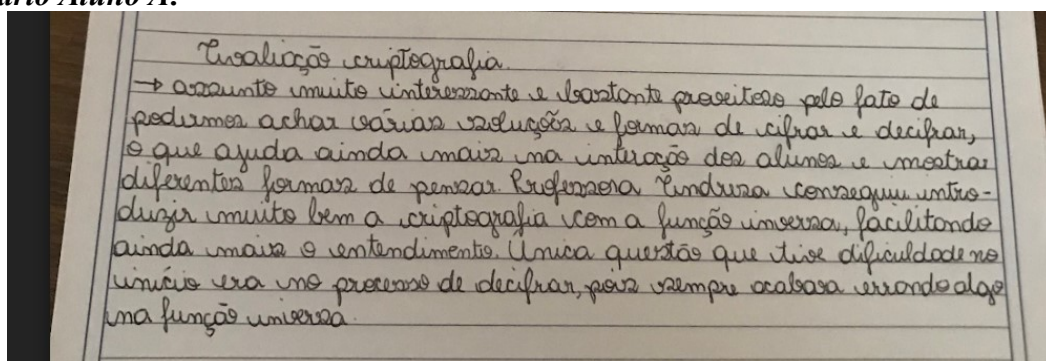 ário Aluno A:
Avaliação criptografia.
→ assunto muito interessante e bastante proveitoso pelo fato de
podermos achar várias soluções e formas de cifrar e decifrar,
o que ajuda ainda mais na interação dos alunos e mostrar
diferentes formas de pensar. Professora Andreza conseguiu intro-
duzir muito bem a criptografia com a função inversa, facilitando
ainda mais o entendimento. Única questão que tive dificuldade no
início era no processo de decifrar, pois sempre acabava errando algo
na função inversa.